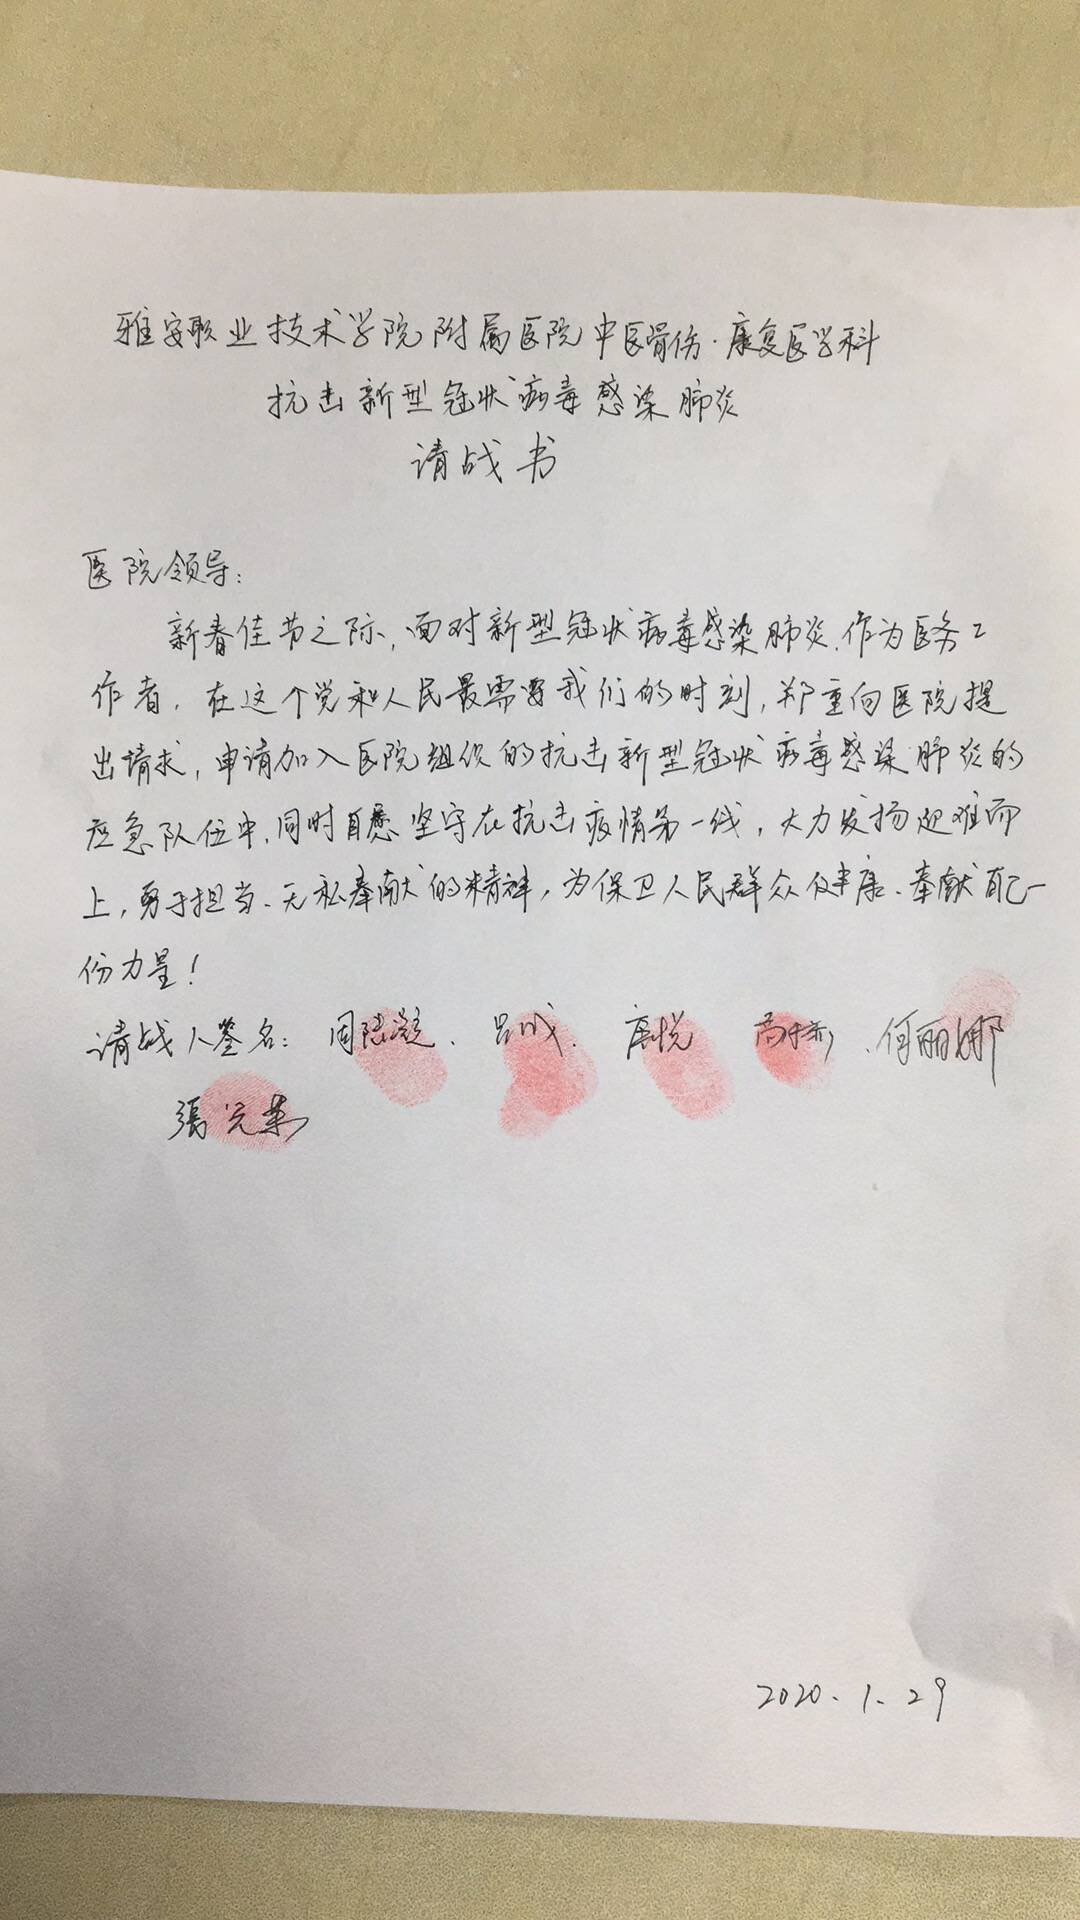 雅安职业技术学院附属医院中医骨伤·康复医学科
抗击新型冠状病毒感染肺炎
请战书
医院领导:
新春佳节之际,面对新型冠状病毒感染肺炎,作为医务工
作者,在这个党和人民最需要我们的时刻,郑重向医院提
出请求,申请加入医院组织的抗击新型冠状病毒感染肺炎的
应急队伍中,同时自愿坚守在抗击疫情第一线,大力发扬迎难而
上,勇于担当、无私奉献的精神,为保卫人民群众健康、奉献自己一
份力量!
请战人签名: 唐悦 何丽娜
張元
2020.1.29